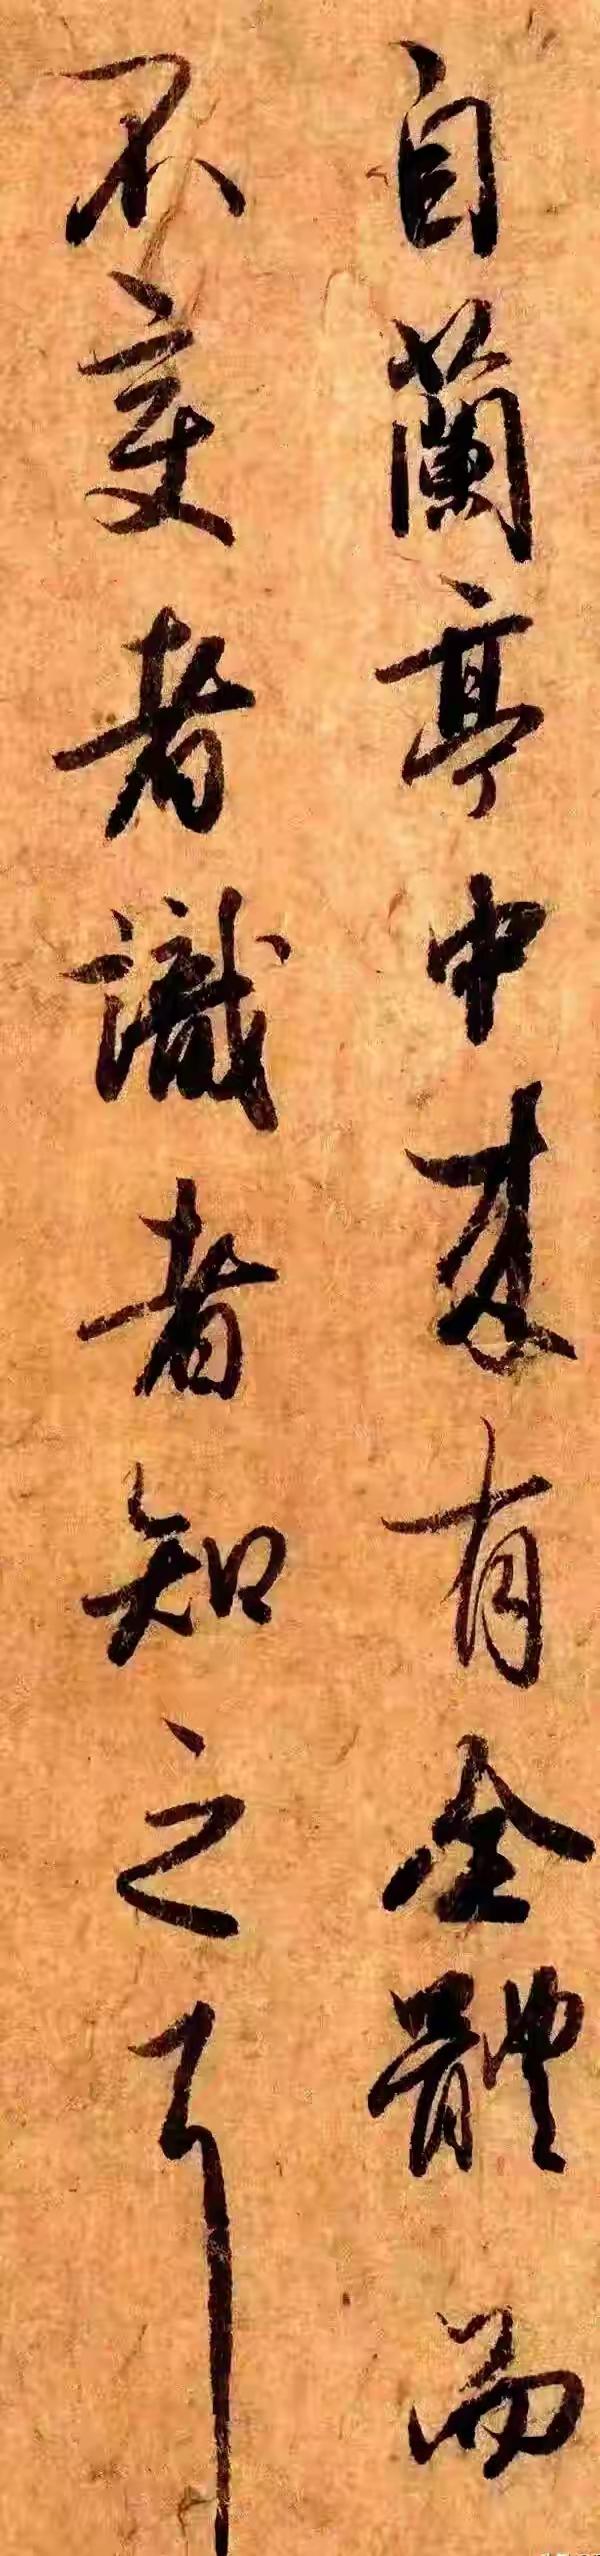 自蘭亭中來有全體而
不變者識者知之耳